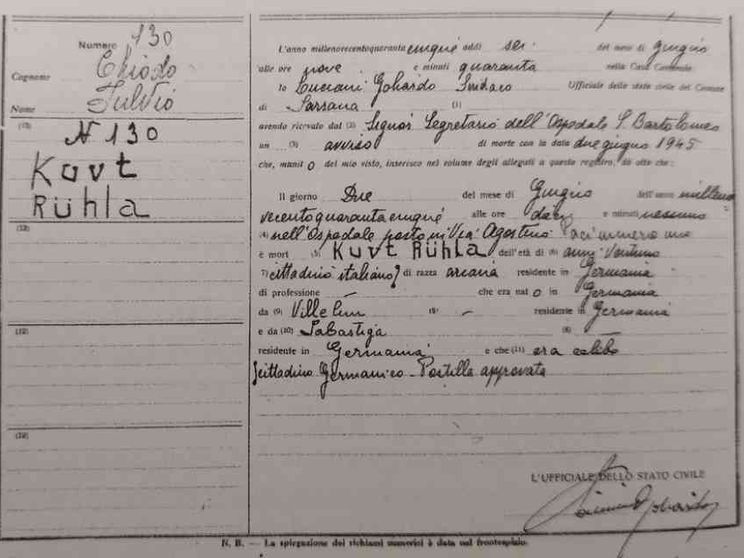 Numero 130
Cognome Chiodo
Nome Fulvio
(12) N 130
Kurt
Rühla
(12)
(12)
(12)
L'anno millenovecentoquaranta cinque addì sei del mese di giugno
alle ore nove e minuti quaranta nella Casa Comunale
Io Luciani Gobardo Sindaco Ufficiale dello stato civile del Comune
di Sarzana (1)
avendo ricevuto dal (2) Signor Segretario dell'Ospedale S. Bartolomeo
un (3) avviso di morte con la data due giugno 1945
che, munito del mio visto, inserisco nel volume degli allegati a questo registro, do atto che:
Il giorno Due del mese di Giugno dell'anno milleno
vecentoquaranta cinque alle ore dieci e minuti nessuno
(4) nell'Ospedale posto in Via Agostino Paci numero uno
è morto (5) Kurt Rühla dell'età di (6) anni Ventuno
7) cittadino italiano] di razza ariana residente in Germania
di professione che era nato in Germania
da (9) residente in Germania
e da (10)
residente in Germania e che (11) era celibe
]cittadino Germanico - Postilla approvata
L'UFFICIALE DELLO STATO CIVILE
N. B. — La spiegazione dei richiami numerici è data nel frontespizio.